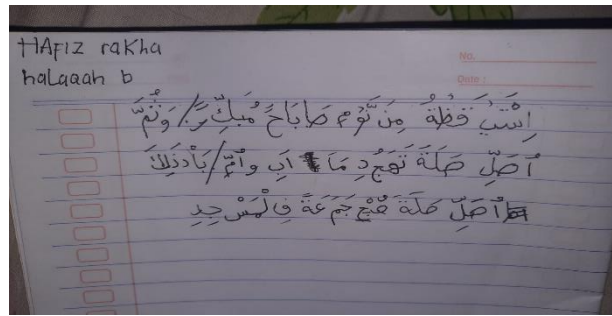 HAFIZ rakha
haLaqah b
No.
Date :
اِسْتَبَ قَظْةُ مِنَ نَّوْم صَابَاحً مُبَكِّرً/ وَثُمَّ
اُصَلِّ صَلَةَ تَهَجُدِ مَا اَبِ واُمِّ/بَاْدَذَلِكَ
اُصَلِّ صَلَةَ صُبْح جَمَعَةً فِ لْمَسْ جِدِ